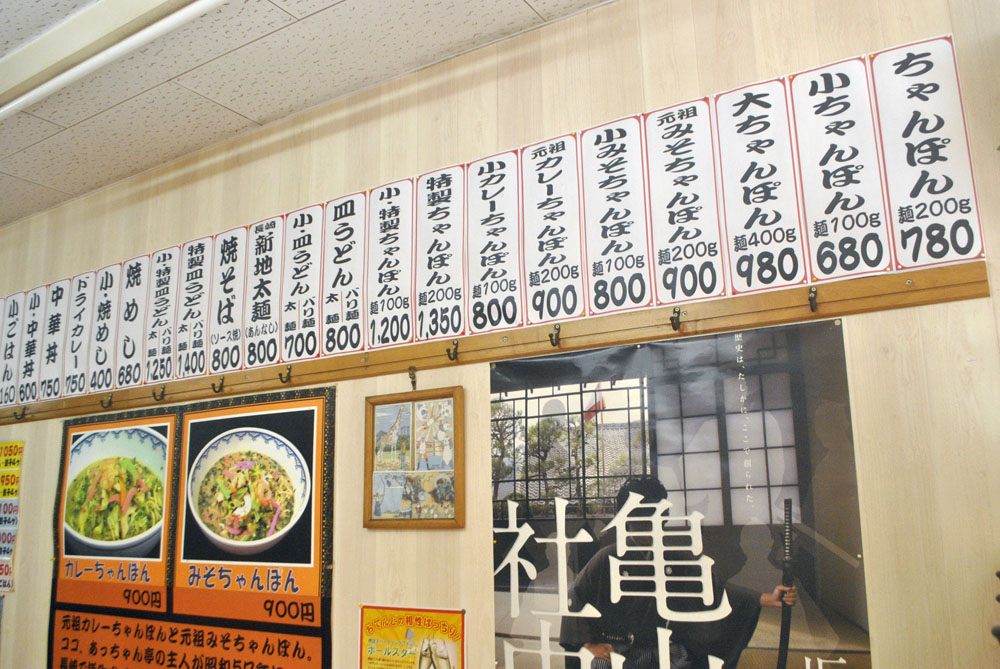 ちゃんぽん 麺200g 780
小ちゃんぽん 麺100g 680
大ちゃんぽん 麺400g 980
元祖 みそちゃんぽん 麺200g 900
小みそちゃんぽん 麺100g 800
元祖 カレーちゃんぽん 麺200g 900
小カレーちゃんぽん 麺100g 800
特製ちゃんぽん 麺200g 1,350
小・特製ちゃんぽん 麺100g 1,200
皿うどん 太麺 パリ麺 800
小・皿うどん 太麺 パリ麺 700
長崎 新地太麺 (あんなし) 800
焼そば (ソース焼) 800
特製皿うどん 太麺 パリ麺 1400
小・特製皿うどん 太麺 パリ麺 1250
焼めし 680
小・焼めし 400
ドライカレー 750
中華丼 750
小・中華丼 600
小ごはん 160
カレーちゃんぽん
900円
みそちゃんぽん
900円
元祖カレーちゃんぽんと元祖みそちゃんぽん。
ココ、あっちゃん亭の主人が昭和57
おでんとの相性ばっちり!
ボールスター
歴史は、たしかにここで創られた。
亀山
社中